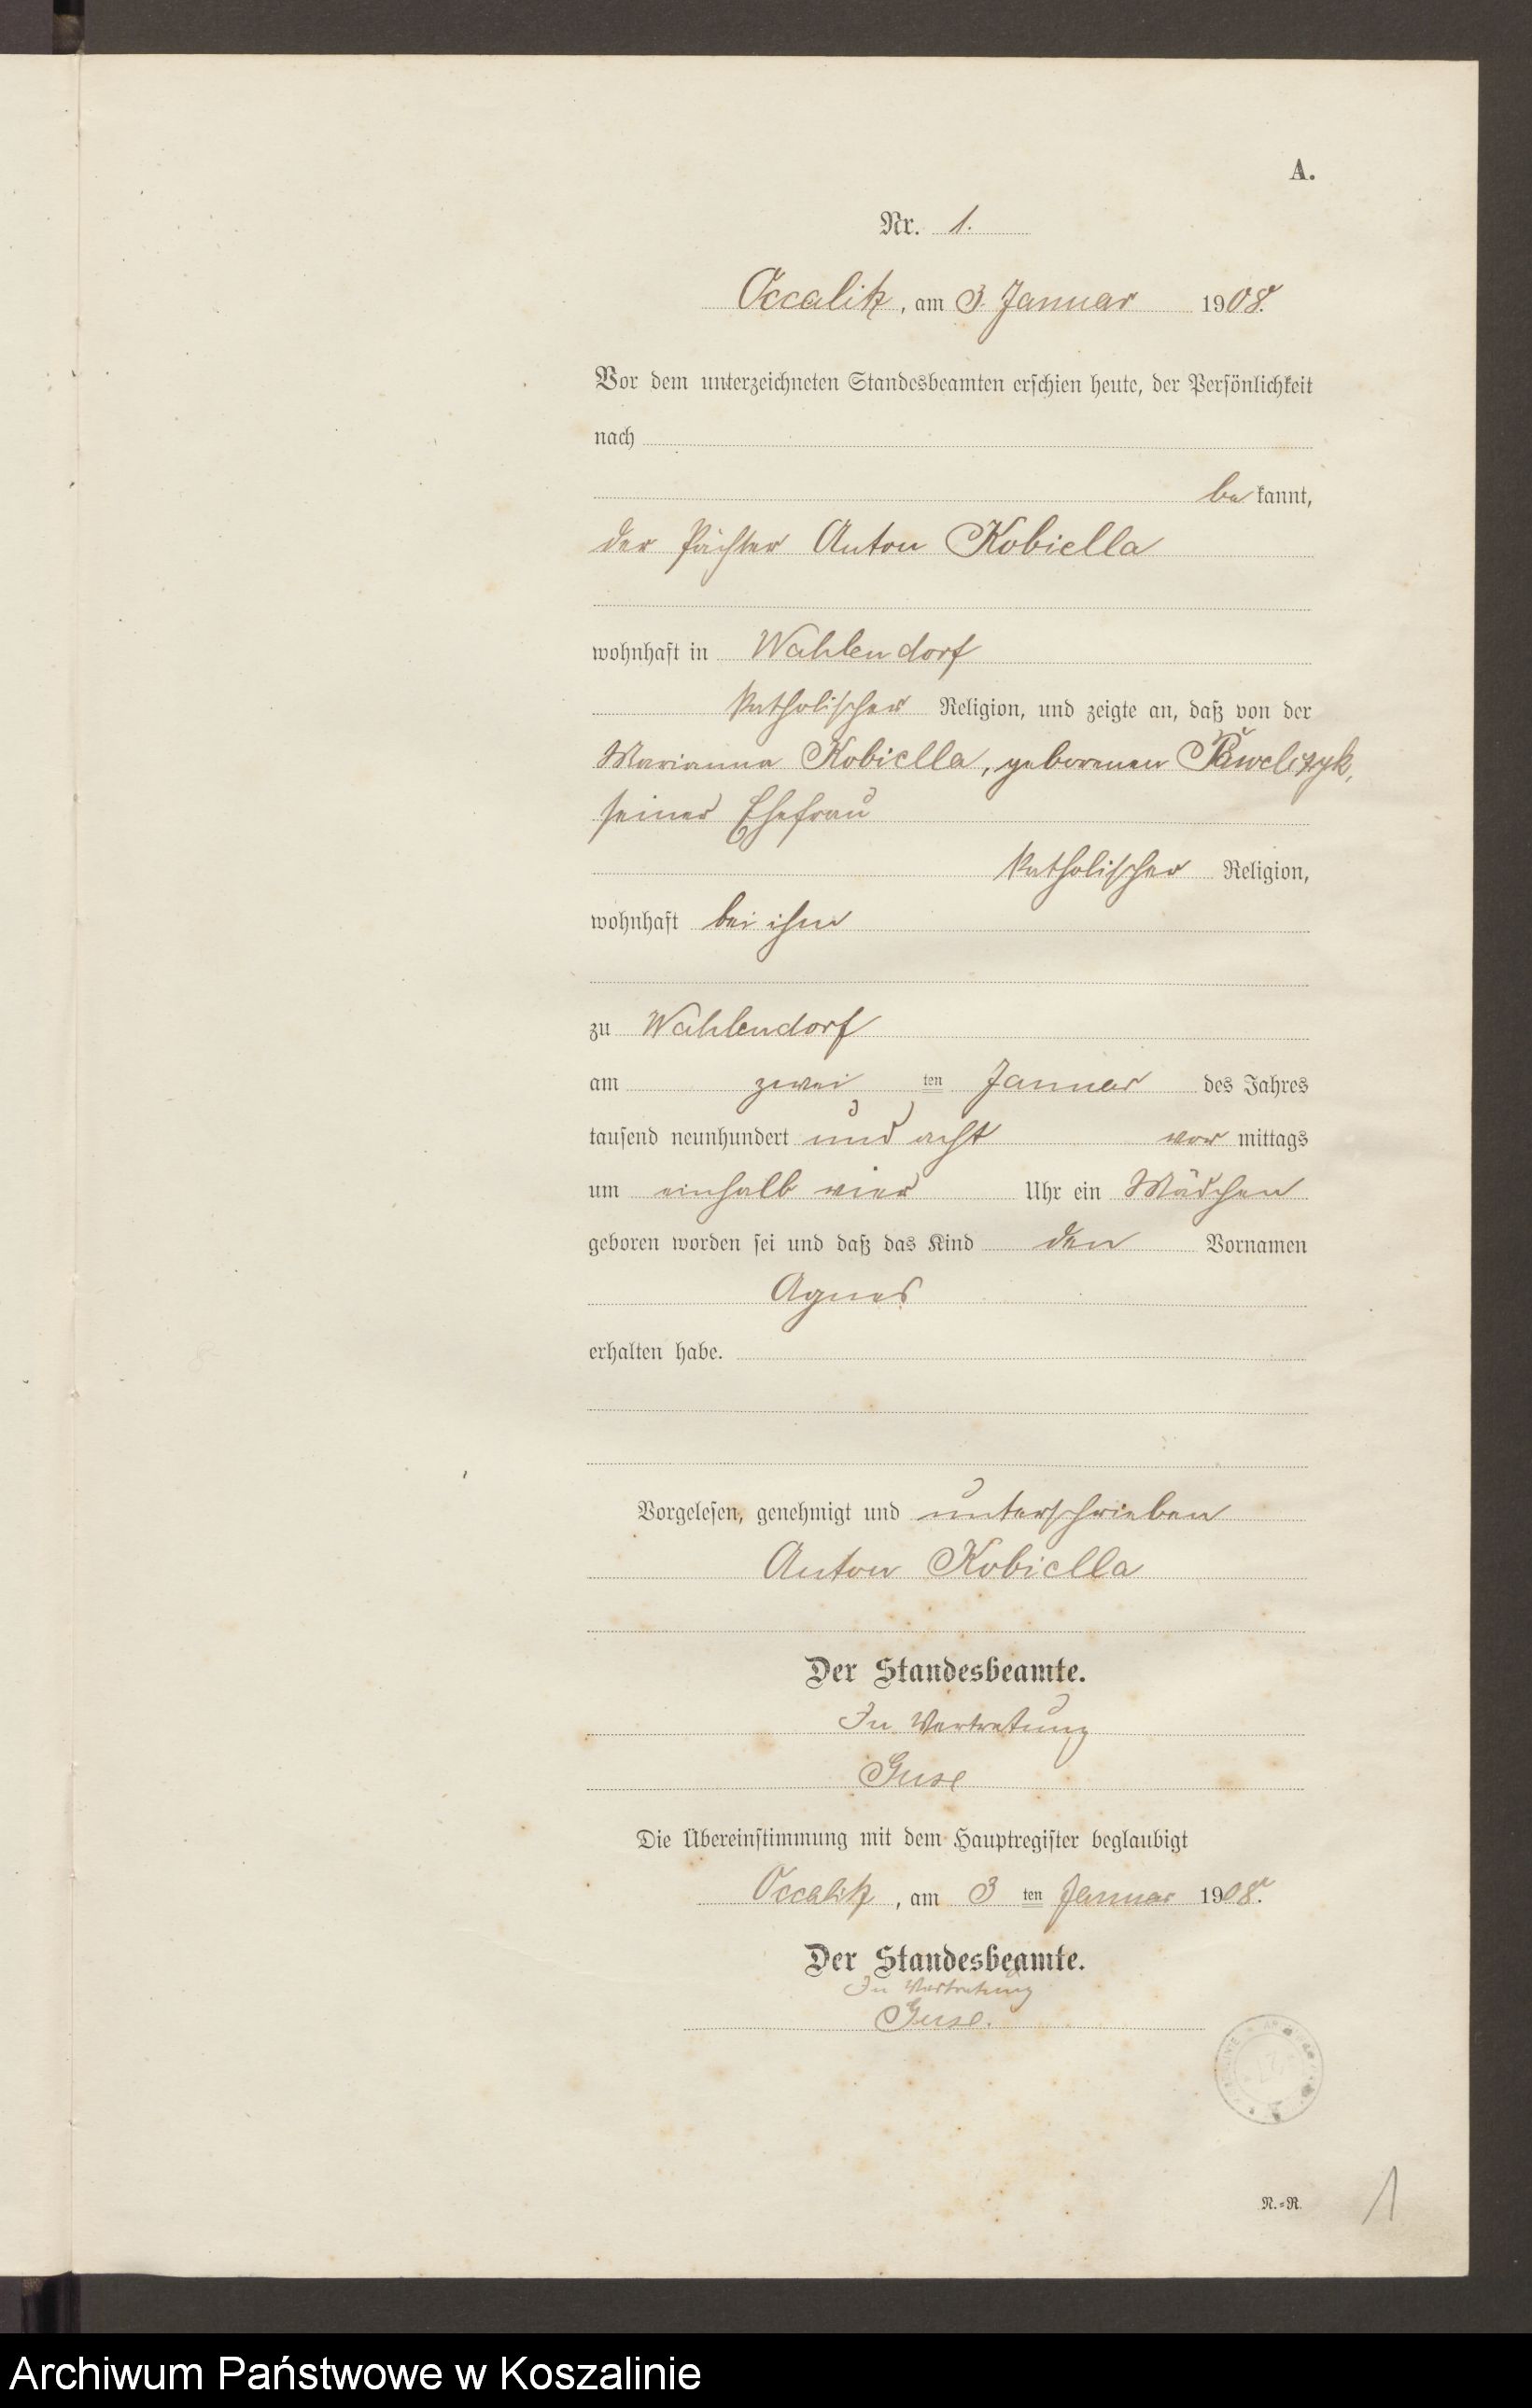 A.
Nr. 1.
Occalitz, am 3. Januar 1908.
Vor dem unterzeichneten Standesbeamten erschien heute, der Persönlichkeit
nach
be kannt,
der Pächter Anton Kobiella
wohnhaft in Wahlendorf
katholischer Religion, und zeigte an, daß von der
Marianna Kobiella, geborenen Pawelczyk,
seiner Ehefrau
katholischer Religion,
wohnhaft bei ihm
zu Wahlendorf
am zwei ten Januar des Jahres
tausend neunhundert und acht vor mittags
um einhalb vier Uhr ein Mädchen
geboren worden sei und daß das Kind den Vornamen
Agnes
erhalten habe.
Vorgelesen, genehmigt und unterschrieben
Anton Kobiella
Der Standesbeamte.
In Vertretung
Guse
Die Übereinstimmung mit dem Hauptregister beglaubigt
Occalitz, am 3 ten Januar 1908.
Der Standesbeamte.
In Vertretung
Guse.
N.=R.
1
Archiwum Państwowe w Koszalinie